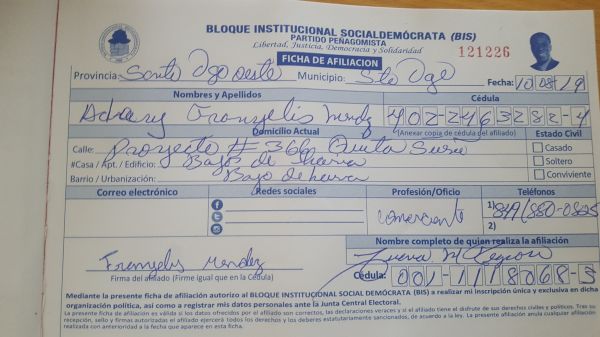 BLOQUE INSTITUCIONAL SOCIALDEMÓCRATA (BIS)
PARTIDO PEÑAGOMISTA
Libertad, Justicia, Democracia y Solidaridad
121226
FICHA DE AFILIACION
Provincia: Santo Dgo oeste Municipio: Sto Dgo Fecha: 10 08 19
Nombres y Apellidos Cédula
Frangelis 402-2463282-4
Domicilio Actual (Anexar copia de cédula del afiliado) Estado Civil
Calle: Proyecto # 366 Quinta
Casado
#Casa / Apt. / Edificio: Bajos de haina
Soltero
Barrio / Urbanización: Bajo de haina
Conviviente
Correo electrónico Redes sociales Profesión/Oficio Teléfonos
comerciante 1) 849/880-0825
2)
Nombre completo de quien realiza la afiliación
Frangelis Mendez
Firma del afiliado (Firme igual que en la Cédula)
Cédula: 001-1118068-3
Mediante la presente ficha de afiliación autorizo al BLOQUE INSTITUCIONAL SOCIALDEMÓCRATA (BIS) a realizar mi inscripción única y exclusiva en dicha
organización política, así como a registrar mis datos personales ante la Junta Central Electoral.
La presente ficha de afiliación es válida si los datos ofrecidos por el afiliado son correctos, las declaraciones veraces y si el afiliado tiene el disfrute de sus derechos civiles y políticos. Tras su
recepción, sello y firmas autorizadas el afiliado ejercerá todos los derechos y los deberes estatutariamente sancionados, de acuerdo a la ley. La presente afiliación anula cualquier afiliación
realizada con anterioridad a la fecha que aparece en esta ficha.